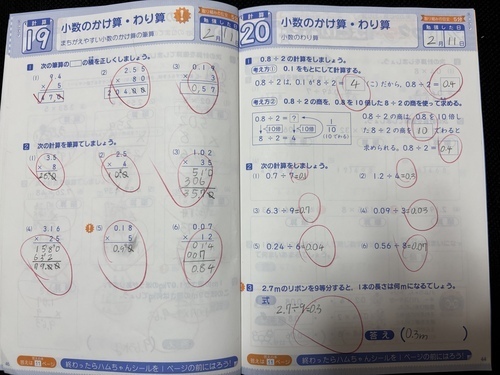 計算
19
小数のかけ算・わり算
まちがえやすい小数のかけ算の筆算
勉強した日
2月11日
1 次の筆算の□の積を正しくしましょう。
(1) 9.4
× 5
(2) 2.55
× 80
(3) 0.19
× 3
0.57
2 次の計算を筆算でしましょう。
(1) 3.5
× 8
(2) 2.5
× 4
(3) 1.02
× 35
510
306
(4) 3.16
× 25
1580
632
(5) 0.18
× 5
(6) 0.07
× 12
014
007
0.84
答えは
ページ
終わったらハムちゃんシールを1ページの前にはろう!
計算
20
小数のかけ算・わり算
小数のわり算
勉強した日
2月11日
1 0.8÷2の計算をしましょう。
考え方① 0.1をもとにして計算する。
0.8÷2は、0.1が8÷2=4(こ)だから、0.8÷2=0.4
考え方② 0.8÷2の商を、0.8を10倍した8÷2の商を使って求める。
0.8÷2=?
×10倍
×10倍
1/10
(10でわる)
8÷2=4
0.8÷2の商は、0.8を10倍し
た8÷2の商を10でわると
求められる。0.8÷2=0.4
2 次の計算をしましょう。
(1) 0.7÷7=0.1
(2) 1.2÷4=0.3
(3) 6.3÷9=0.7
(4) 0.09÷3=0.03
(5) 0.24÷6=0.04
(6) 0.56÷8=0.07
3 2.7mのリボンを9等分すると、1本の長さは何mになるでしょう。
式
2.7÷9=0.3
答え (0.3m)
答えは
ページ
終わったらハムちゃんシールを1ページの前にはろう!